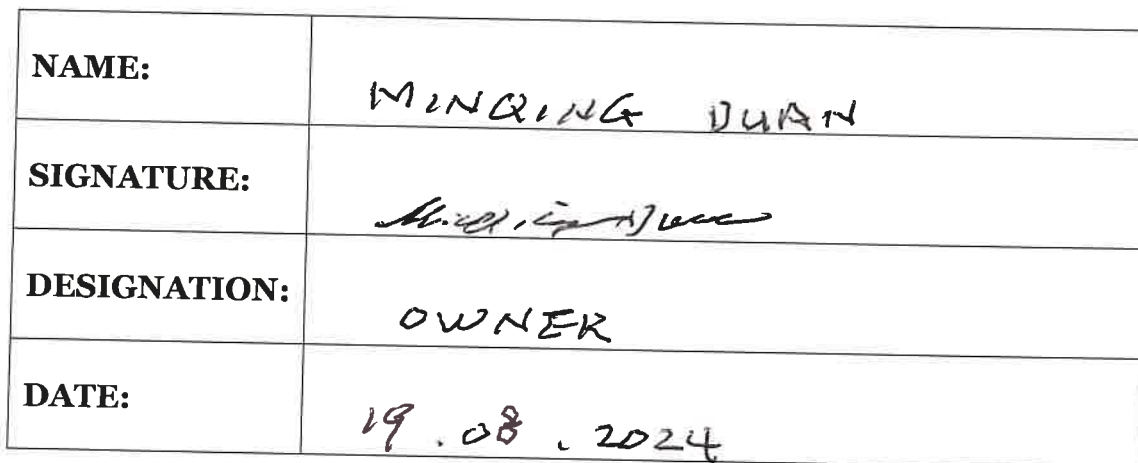 NAME: MINQING DUAN
SIGNATURE:
DESIGNATION: OWNER
DATE: 19.08.2024